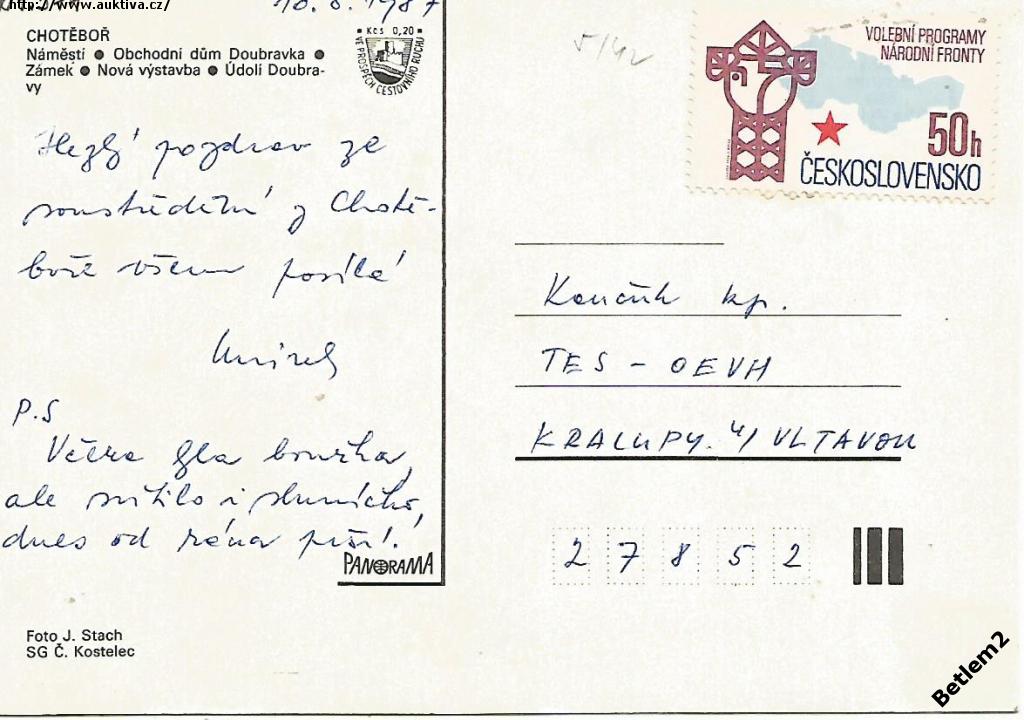 http://www.auktiva.cz/
10. 8. 1987
CHOTĚBOŘ
Náměstí ● Obchodní dům Doubravka ●
Zámek ● Nová výstavba ● Údolí Doubra-
vy
Kčs 0,20
VE PROSPĚCH CESTOVNÍHO RUCHU
5/42
VOLEBNÍ PROGRAMY
NÁRODNÍ FRONTY
50h
ČESKOSLOVENSKO
Hezký pozdrav ze
soustředění z Chotě-
boře všem posílá
Mirek
P.S
Včera byla bouřka,
ale svítilo i sluníčko,
dnes od rána prší.
kp.
TES - OEVH
KRALUPY. n/VLTAVOU
27852
PANORAMA
Foto J. Stach
SG Č. Kostelec
Betlem2